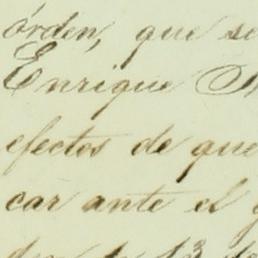 órden, que se
Enrique
efectos de que
car ante el